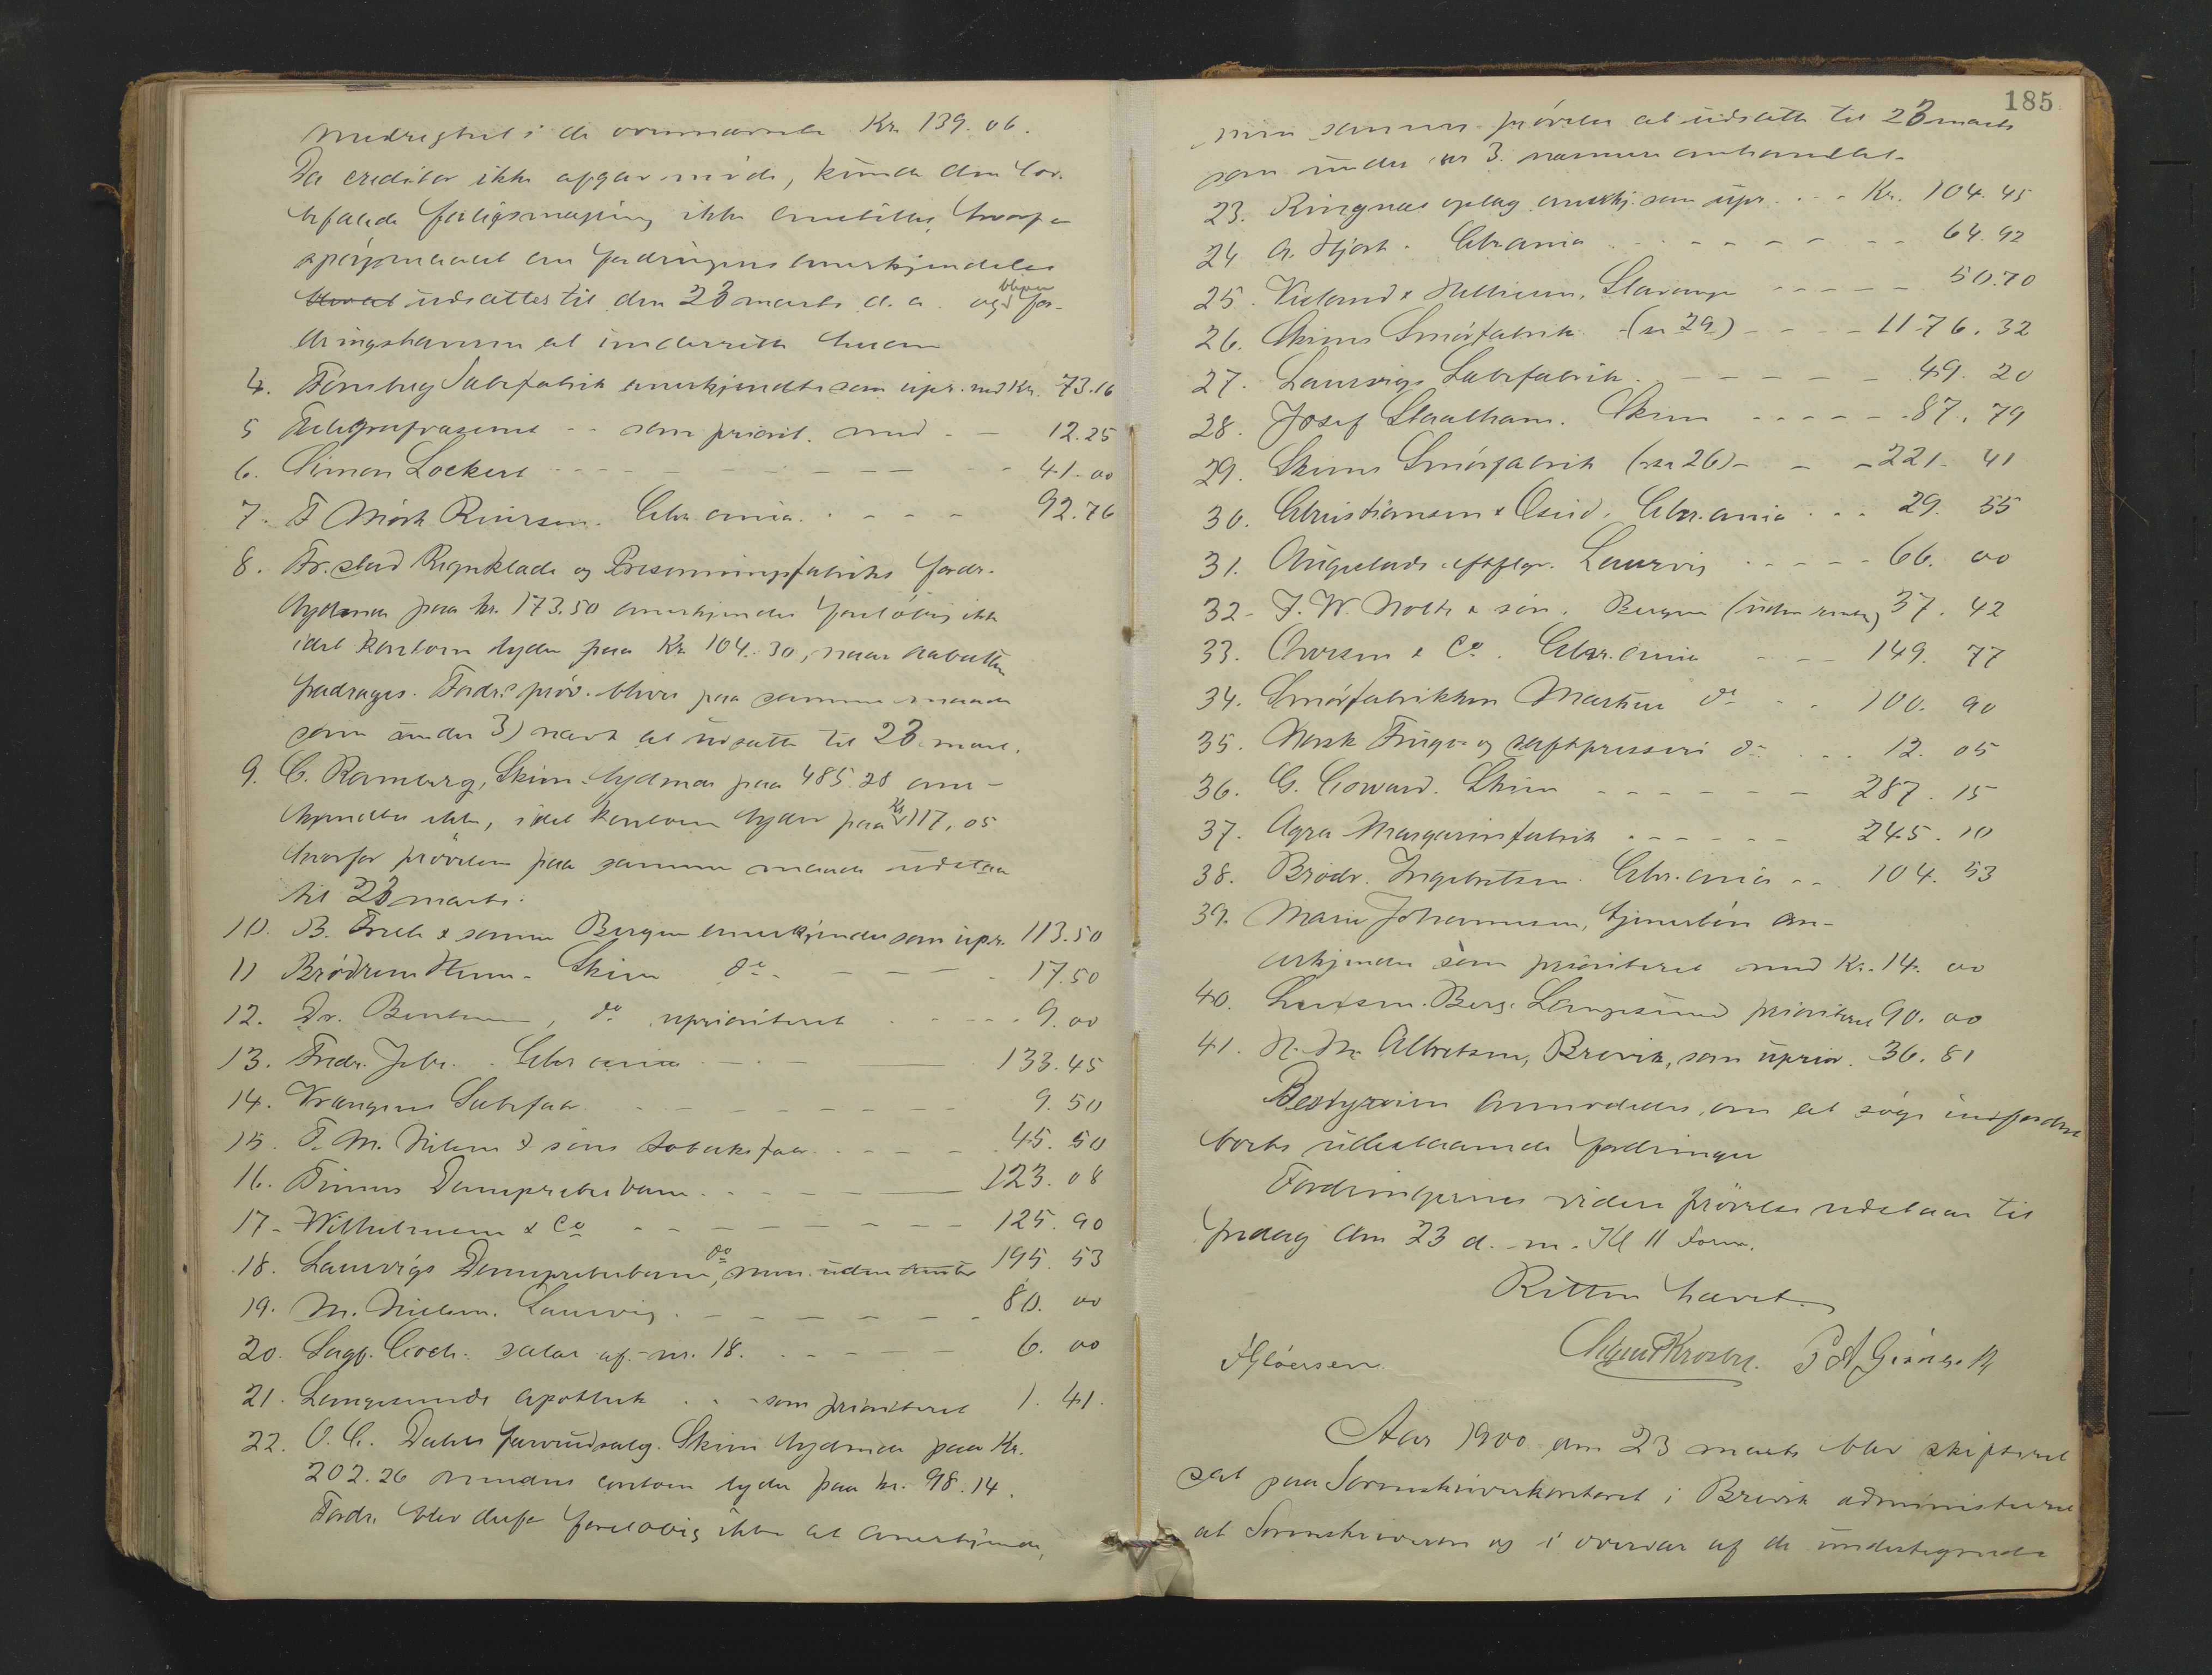 medregnet i de ovennævnte Kr. 139.06.
Da creditor ikke afgav møde, kunde den lov-
befalede forligsmægling ikke anstilles, hvorfor
spørgsmaalet om fordringens anerkjendelse
blev at udsættes til den 23 marts d. a. og bliver for-
dringshaveren at underrette herom
4. Tønsberg Sæbefabrik anerkjendtes som upr. med Kr. 73.16
5 Telegrafvæsenet -- som priorit. med - - 12.25
6. Simon Lockert - - - 41.00
7. F Mørk Reiersen. Chr.ania. - - - 92.76
8. Fr.stad Regnklæde og Presenningsfabriks fordr.
lydende paa kr. 173.50 anerkjendes foreløbig ikke
idet kontoen lyder paa Kr 104.30, naar rabatten
fradrages. Fordr.s prøv. bliver paa samme maade
som under 3) nævt at udsætte til 23. mars.
9. C. Ramberg, Skien. lydende paa 485.28 aner-
kjendtes ikke, idet kontoen lyder paa Kr 117,05
hvorfor prøvelsen paa samme maade udstaar
til 23 marts.
10. B. Friele & sønner Bergen anerkjendes som upr. 113.50
11 Brødrene - Skien do - - - 17.50
12. Dr. , do uprioriteret - - - 9.00
13. Fredr. . Chr.ania - - 133.45
14. Vrangens Sæbefabr. - - - 9.50
15. T. M. Nielsen & søns tobaksfabr. - - - 45.50
16. Dampkjøkken - - - 123.08
17- Wilhelmsen & Co - - - 125.90
18. Laurvigs do uden 195.53
19. M. Nielsen. Laurvig. - - - 80.00
20. Sagf. Coch. salær af nr. 18. - - - 6.00
21. Langesunds apothek - - som prioriteret 1.41.
22. O. C. Dahls farveudsalg. Skien lydende paa Kr.
202.26 medens contoen lyder paa kr. 98.14.
Fordr. blev derfor foreløbig ikke at anerkjende,
185
men sammes prøvelse at udsætte til 23 marts
som under nr 3. nærmere omhandlet.
23. Ringnes oplag anerkj. som upr. - - Kr. 104.45
24 A. Hjort. Chr.ania - - - 64.92
25. Vieland & , Stavanger - - - 50.70
26. Skiens Smørfabrik (nr 29) - - - 1176.32
27. Laurvigs Sæbefabrik. - - - 49.20
28. Josef Skien - - - 87.79
29. Skiens Smørfabrik (nr 26) - - - 221.41
30. Christiansen & , Chr.ania - - - 29.55
31. eftflgr. Laurvig - - - 66.00
32- J. W. & søn. Bergen (uden renter) 37.42
33. & Co. Chr.ania - - - 149.77
34. Smørfabrikken do - - 100.90
35. Norsk Frugt- og saftpresseri do - - 12.05
36. G. Coward. Skien - - - 287.15
37. Agra Margarinfabrik - - - 245.10
38. Brødr. Ingebretsen. Chr.ania - - 104.53
39. Marie Johannesen, tjenerløn an-
erkjendes som prioriteret med Kr. 14.00
40. Berg. Langesund prioriteret 90.00
41. H. M. Albretsen, Brevik, som uprior. 36.81
Bestyreren anmodedes om at søge indfordret
boets udestaaende fordringer
Fordringernes videre prøvelse udstaar til
fredag den 23 d. m. Kl 11 form.
Retten hævet.
Aar 1900 den 23 marts blev skifteret
sat paa Sorenskriverkontoret i Brevik administreret
at Sorenskriveren og i overvær af de undertegnede